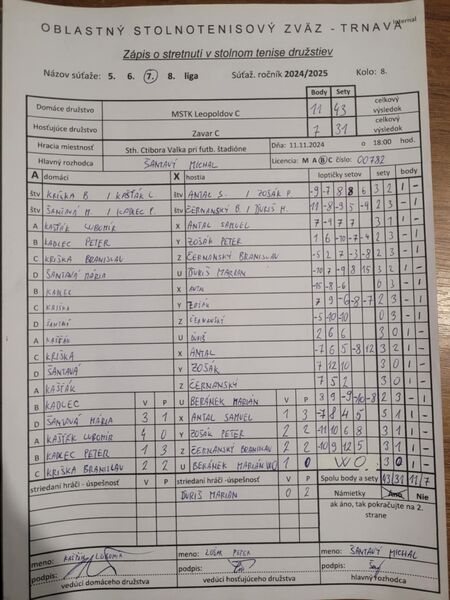 Internal
OBLASTNÝ STOLNOTENISOVÝ ZVÄZ - TRNAVA
Zápis o stretnutí v stolnom tenise družstiev
Názov súťaže: 5. 6. 7. 8. liga Súťaž. ročník 2024/2025 Kolo: 8.
Body Sety
Domáce družstvo MSTK Leopoldov C 11 43 celkový výsledok
Hosťujúce družstvo Zavar C 7 31 celkový výsledok
Hracia miestnosť Sth. Ctibora Valka pri futb. štadióne Dňa: 11.11.2024 o 18:00 hod.
Hlavný rozhodca ŠANTAVÝ MICHAL Licencia: M A B C číslo: 00782
A domáci X hostia loptičky setov sety body
štv KRIŠKA B / KAŠŤÁK L štv ANTAL S. / ZOŠÁK P. -9 -7 8 8 6 3 2 1 -
štv ŠANTAVÁ M. / KADLEC P. štv ČERNANSKÝ B. / ĎURIŠ M. 11 -8 -9 5 -4 2 3 - 1
A KAŠŤÁK ĽUBOMÍR X ANTAL SAMUEL 7 -9 7 7 3 1 1 -
B KADLEC PETER Y ZOŠÁK PETER 1 6 -10 -7 -4 2 3 - 1
C KRIŠKA BRANISLAV Z ČERNANSKÝ BRANISLAV -5 2 7 -3 -8 2 3 - 1
D ŠANTAVÁ MÁRIA U ĎURIŠ MARIAN -10 7 -9 8 15 3 2 1 -
B KADLEC X ANTAL -15 -8 -6 0 3 - 1
C KRIŠKA Y ZOŠÁK 7 9 -6 -8 -7 2 3 - 1
D ŠANTAVÁ Z ČERNANSKÝ -5 -10 -10 0 3 - 1
A KAŠŤÁK U ĎURIŠ 2 6 6 3 0 1 -
C KRIŠKA X ANTAL -7 6 5 -8 12 3 2 1 -
D ŠANTAVÁ Y ZOŠÁK 7 12 10 3 0 1 -
A KAŠŤÁK Z ČERNANSKÝ 7 5 2 3 0 1 -
B KADLEC V P U BERÁNEK MARIÁN V P 8 9 -9 -10 -8 2 3 - 1
D ŠANTAVÁ MÁRIA 3 1 X ANTAL SAMUEL 1 3 -7 8 4 5 3 1 1 -
A KAŠŤÁK ĽUBOMÍR 4 0 Y ZOŠÁK PETER 2 2 -11 10 6 8 3 1 1 -
B KADLEC PETER 1 3 Z ČERNANSKÝ BRANISLAV 2 2 -10 9 12 5 3 1 1 -
C KRIŠKA BRANISLAV 2 2 U BERÁNEK MARIÁN WO 1 0 WO. 3 0 1 -
striedaní hráči - úspešnosť striedaní hráči - úspešnosť Spolu body a sety 43 31 11 7
ĎURIŠ MARIÁN 0 2 Námietky Áno Nie
ak áno, tak pokračujte na 2. strane
meno: KAŠŤÁK ĽUBOMÍR meno: ZOŠÁK PETER meno: ŠANTAVÝ MICHAL
podpis: podpis: podpis:
vedúci domáceho družstva vedúci hosťujúceho družstva hlavný rozhodca